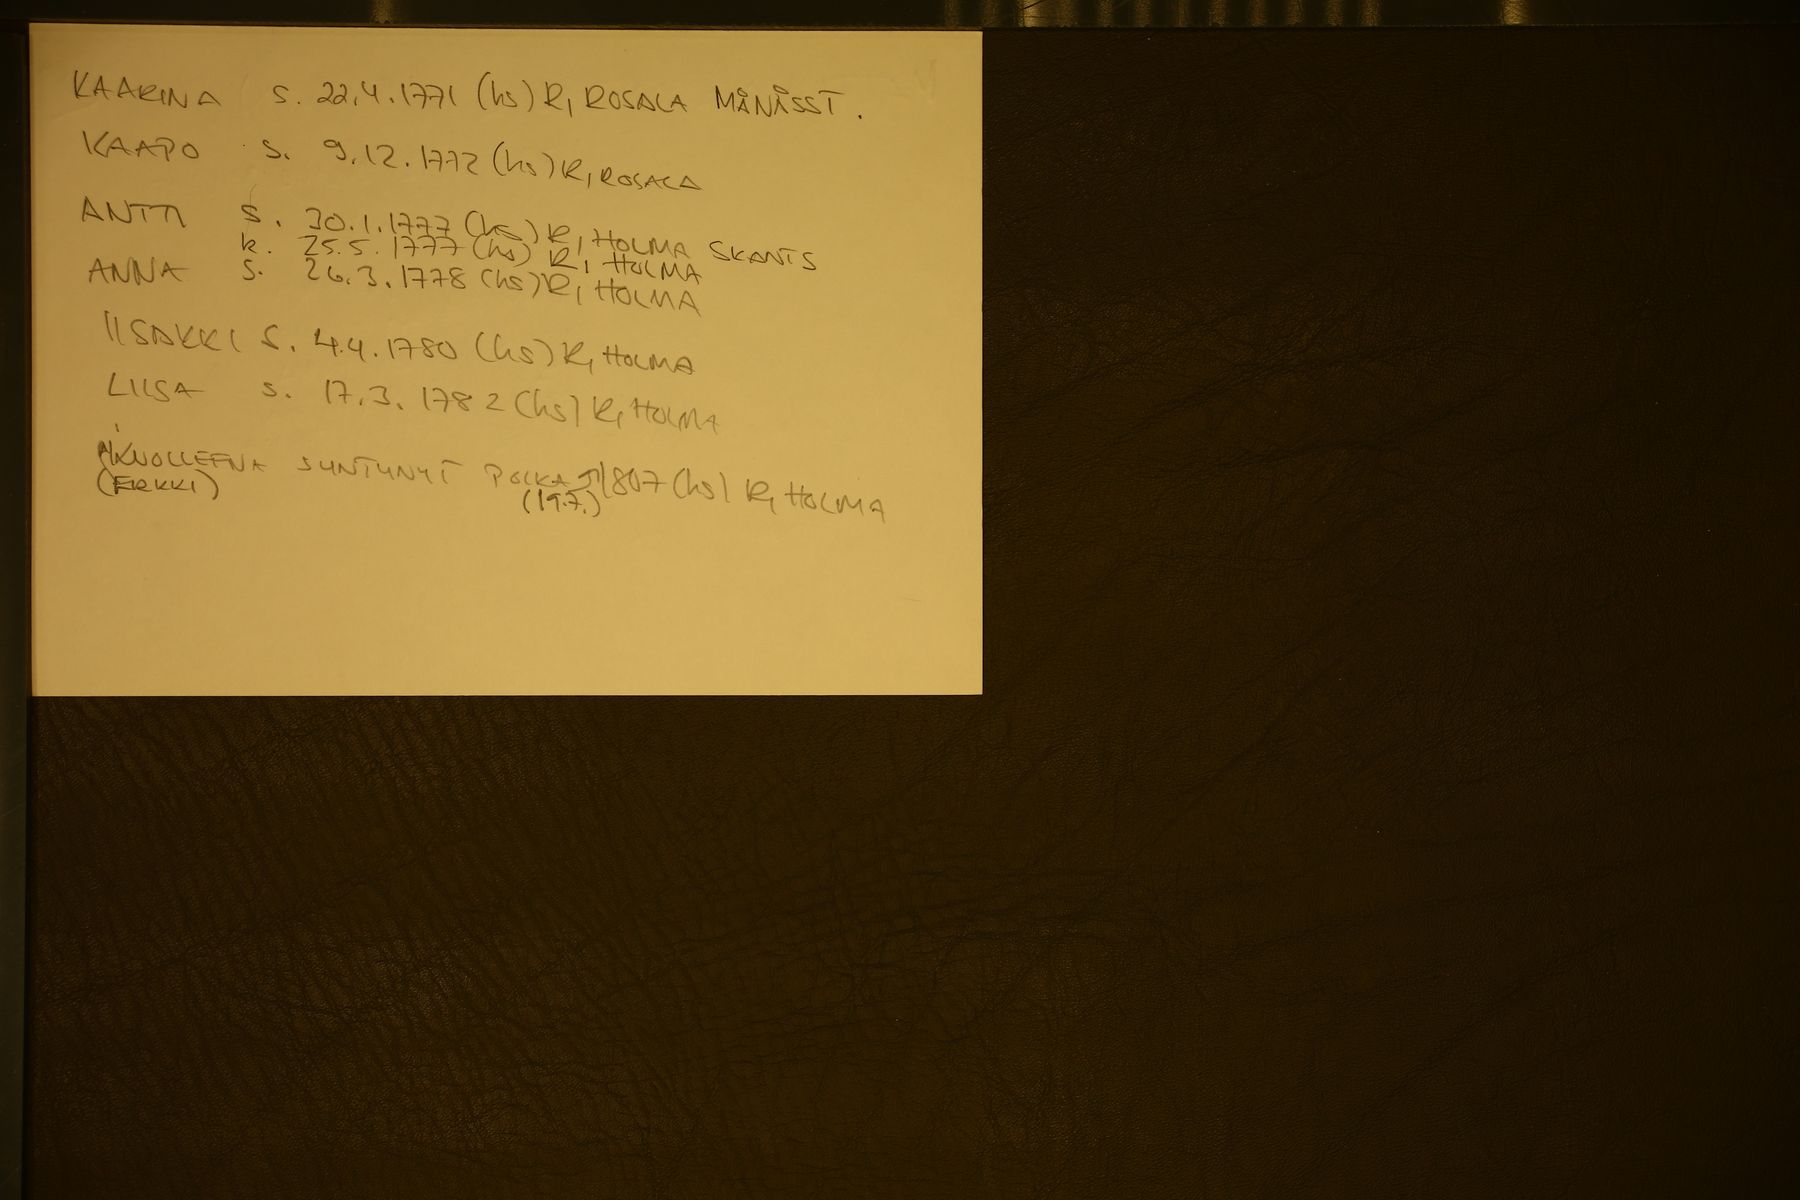 KAARINA s. 22.4.1771 (hs) R, ROSALA MÅNÅSST.
KAAPO s. 9.12.1772 (hs) R, ROSALA
ANTTI s. 30.1.1777 (hs) R, HOLMA SKANTS
k. 25.5.1777 (hs) R, HOLMA
ANNA s. 26.3.1778 (hs) R, HOLMA
IISAKKI s. 4.4.1780 (hs) R, HOLMA
LIISA s. 17.3.1782 (hs) R, HOLMA
KUOLLEENA SYNTYNYT POIKA 1807 (hs) R, HOLMA
(ERKKI) (19.7.)